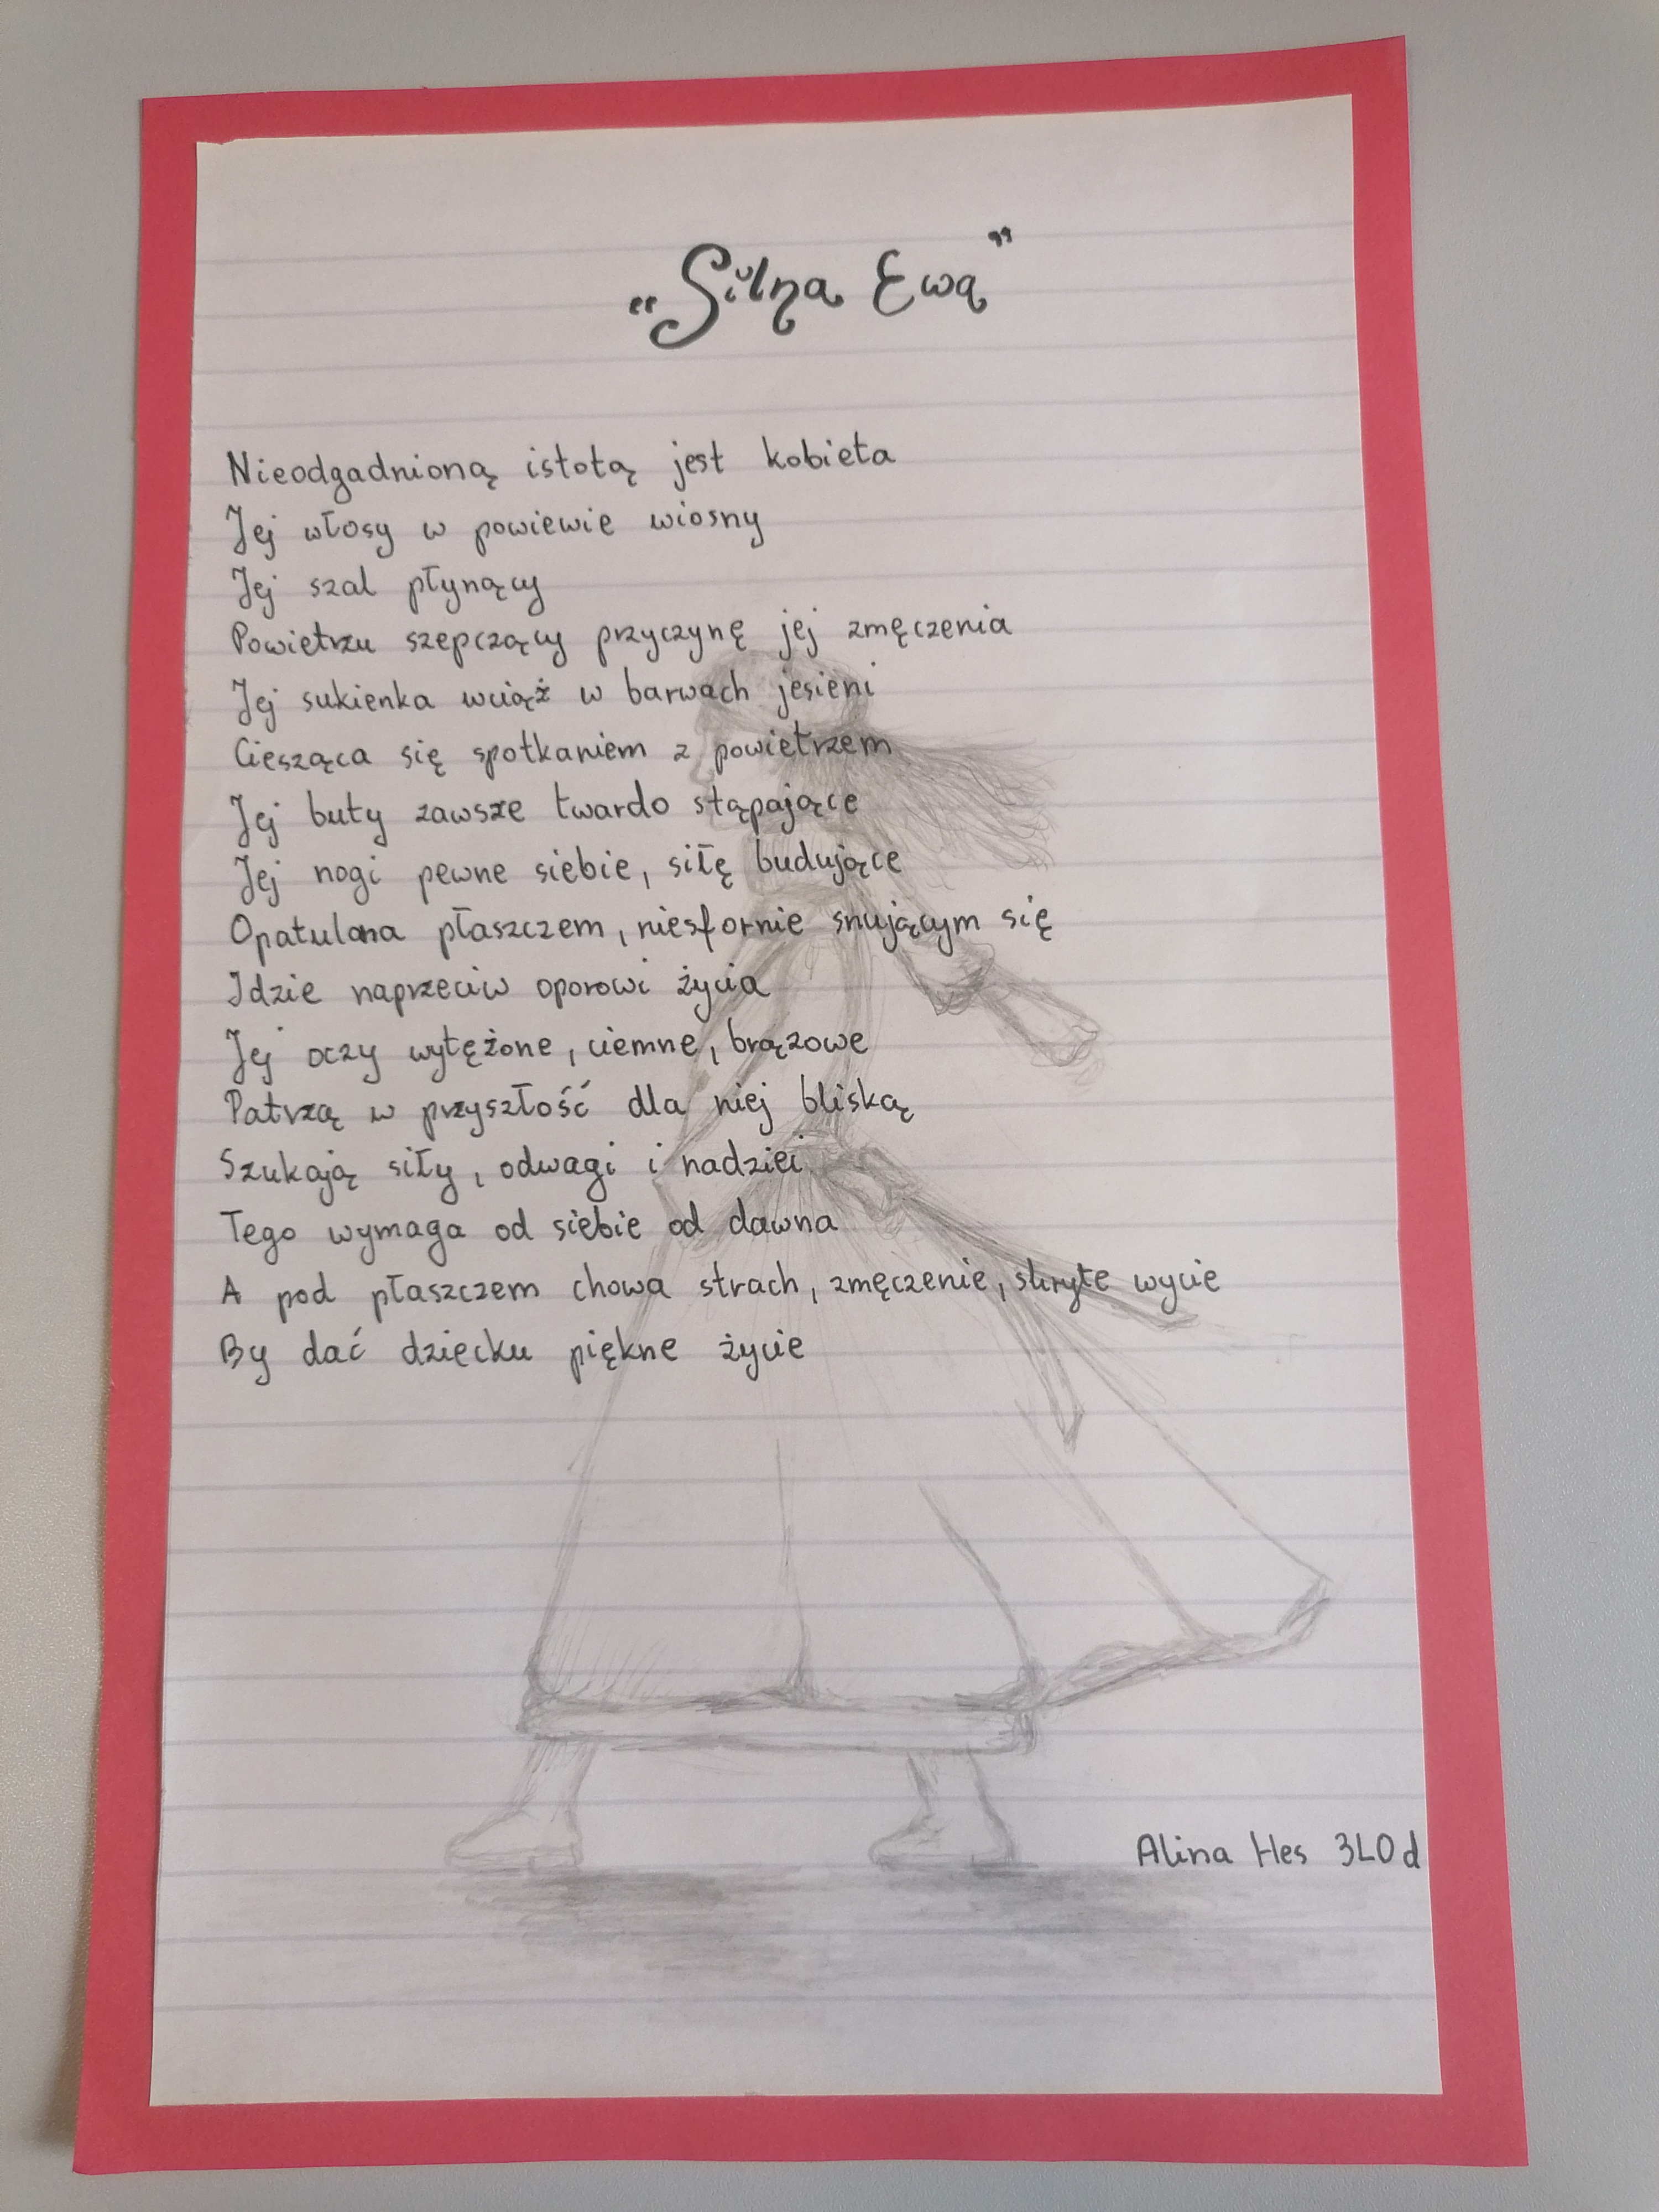 „Silna Ewa”
Nieodgadnioną istotą jest kobieta
Jej włosy w powiewie wiosny
Jej szal płynący
Powietrzu szepczący przyczynę jej zmęczenia
Jej sukienka wciąż w barwach jesieni
Ciesząca się spotkaniem z powietrzem
Jej buty zawsze twardo stąpające
Jej nogi pewne siebie, siłę budujące
Opatulona płaszczem, niesfornie snującym się
Idzie naprzeciw oporowi życia
Jej oczy wytężone, ciemne, brązowe
Patrzą w przyszłość dla niej bliską
Szukają siły, odwagi i nadziei
Tego wymaga od siebie od dawna
A pod płaszczem chowa strach, zmęczenie, skryte wycie
By dać dziecku piękne życie
Alina Hes 3LO d